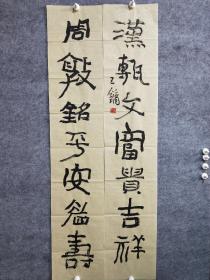 漢甎文富貴吉祥
周敦銘平安益壽
王鏞